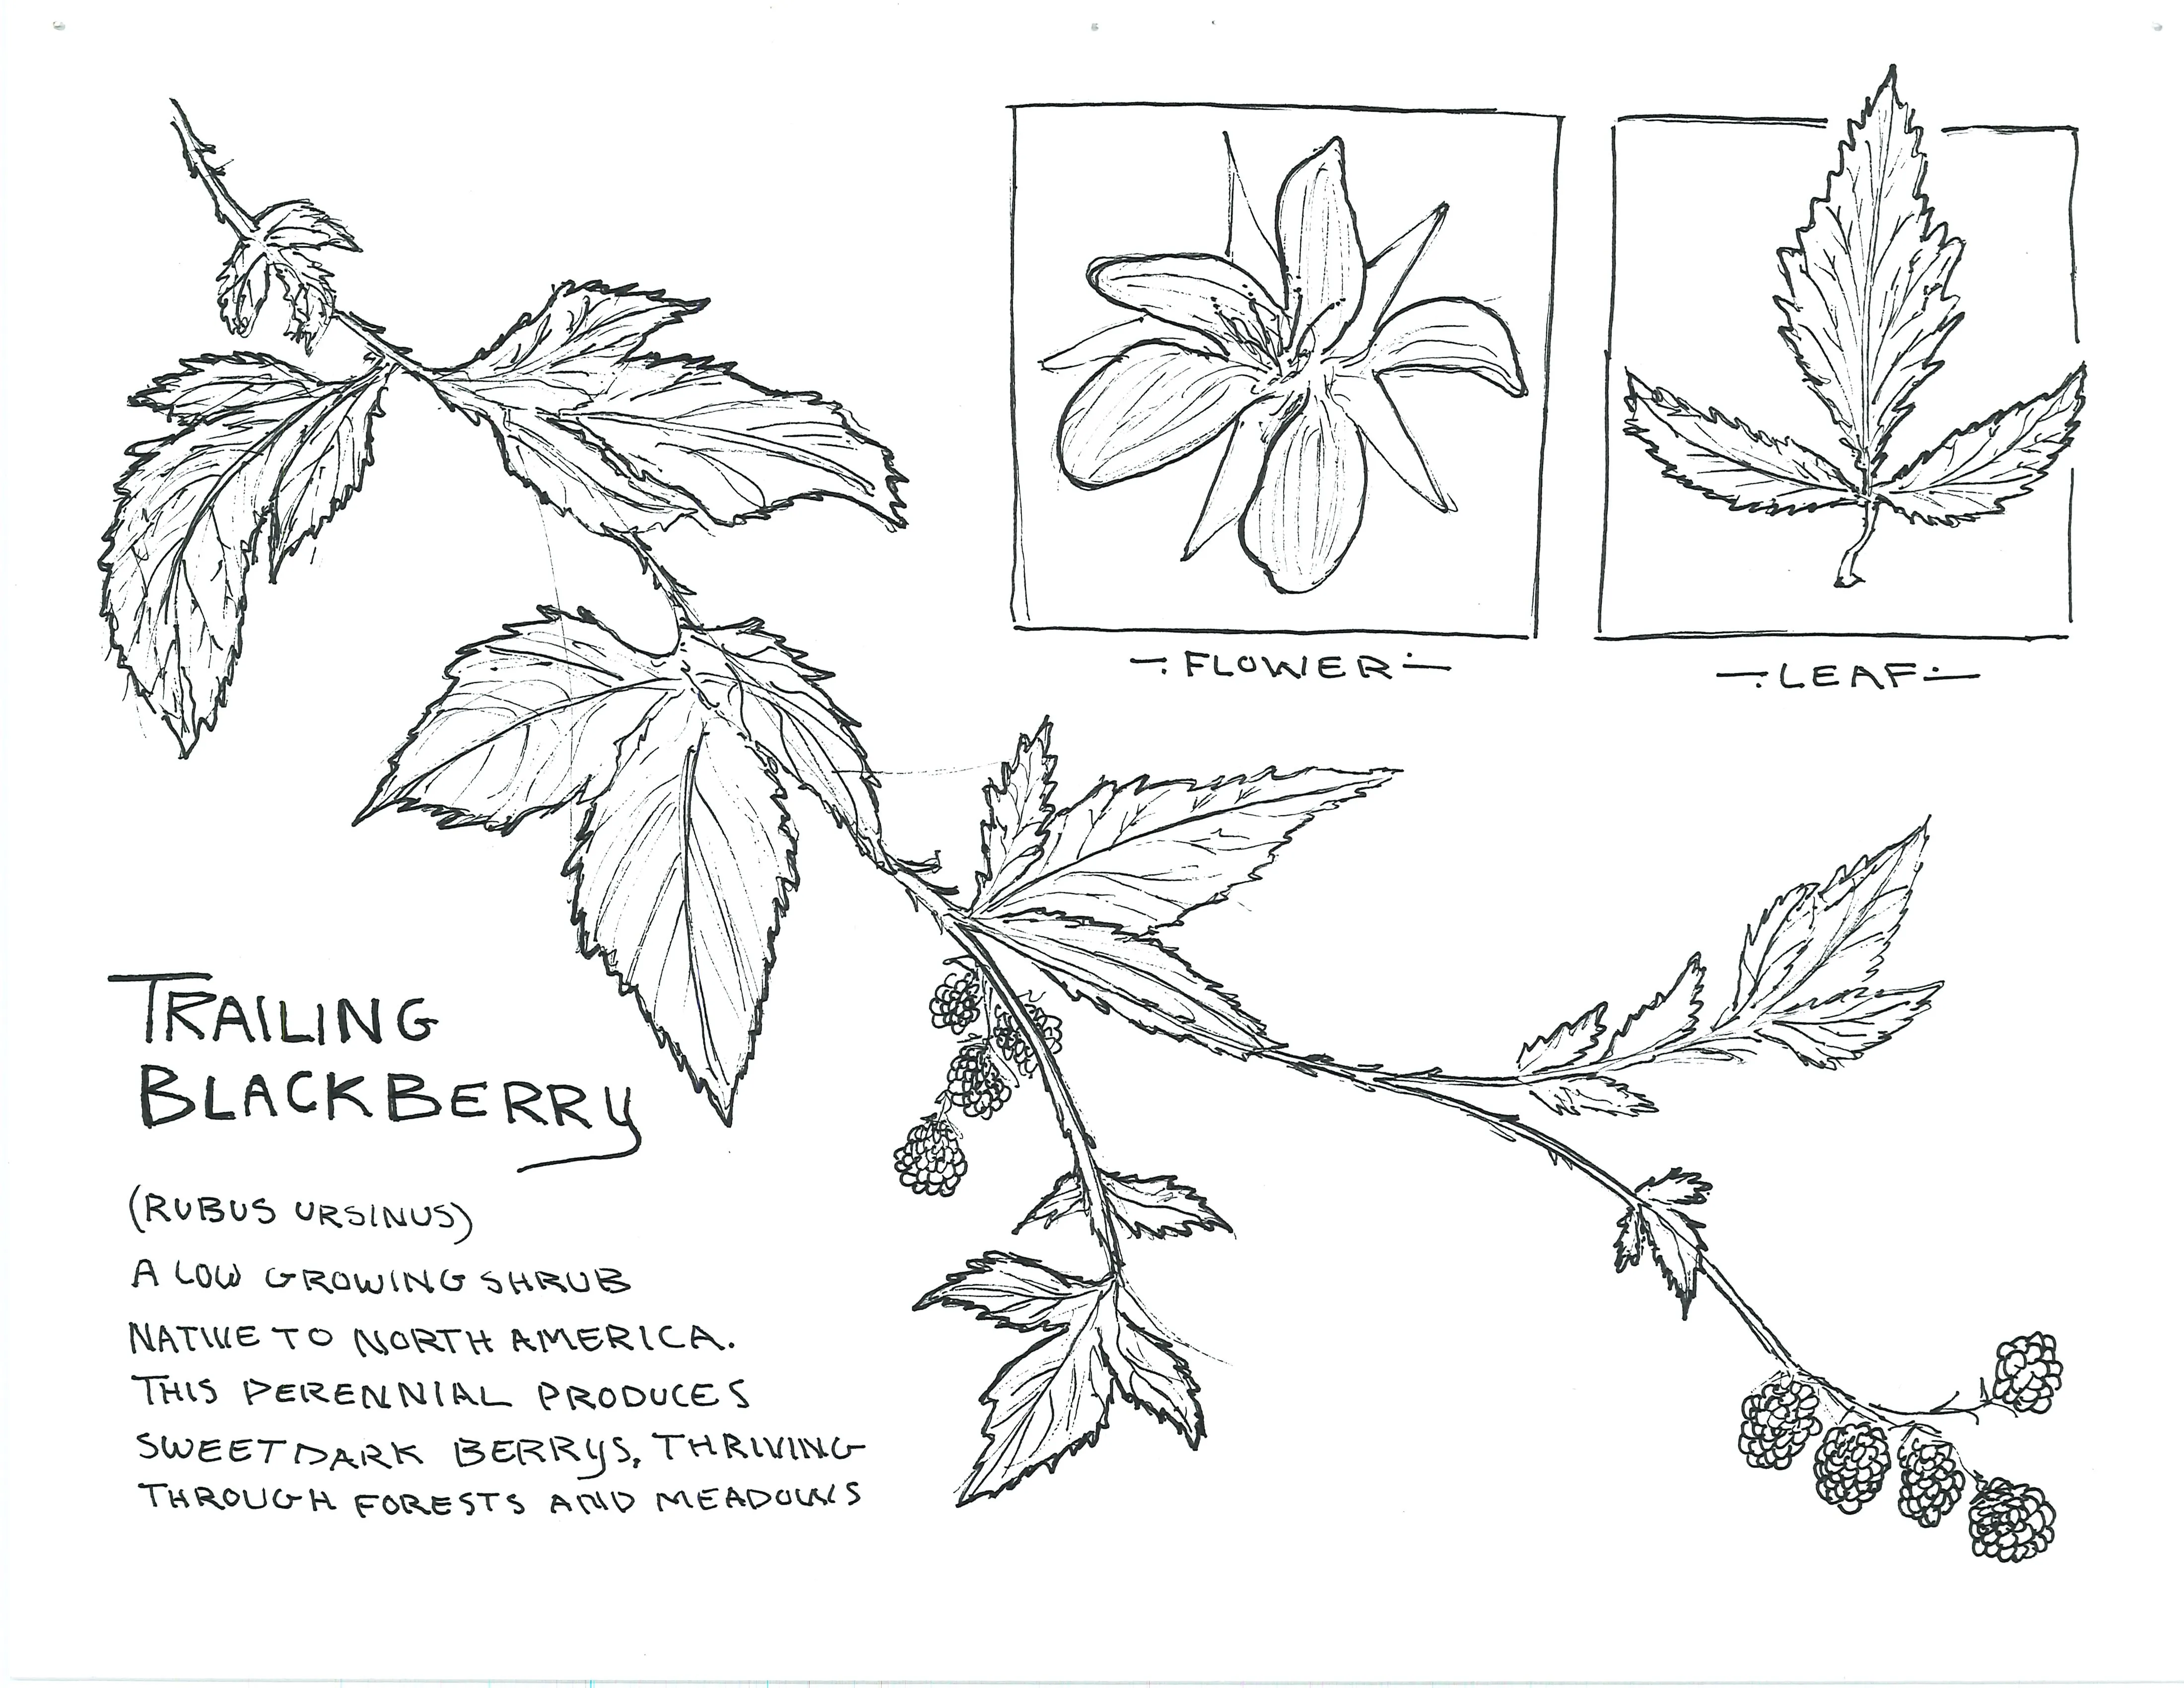 -:FLOWER:-
-:LEAF:-
TRAILING
BLACKBERRY
(RUBUS URSINUS)
A LOW GROWING SHRUB
NATIVE TO NORTH AMERICA.
THIS PERENNIAL PRODUCES
SWEET DARK BERRYS, THRIVING
THROUGH FORESTS AND MEADOWS